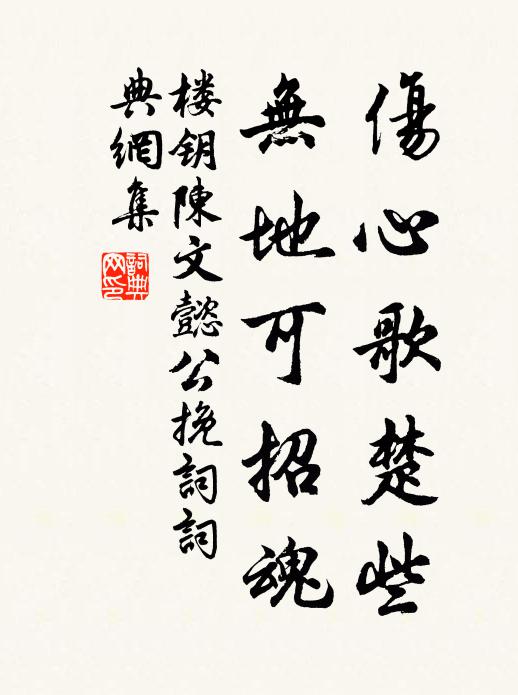 傷心歌楚些
無地可招魂
楼钥陳文懿公挽詞詞
典網集
詞典网印